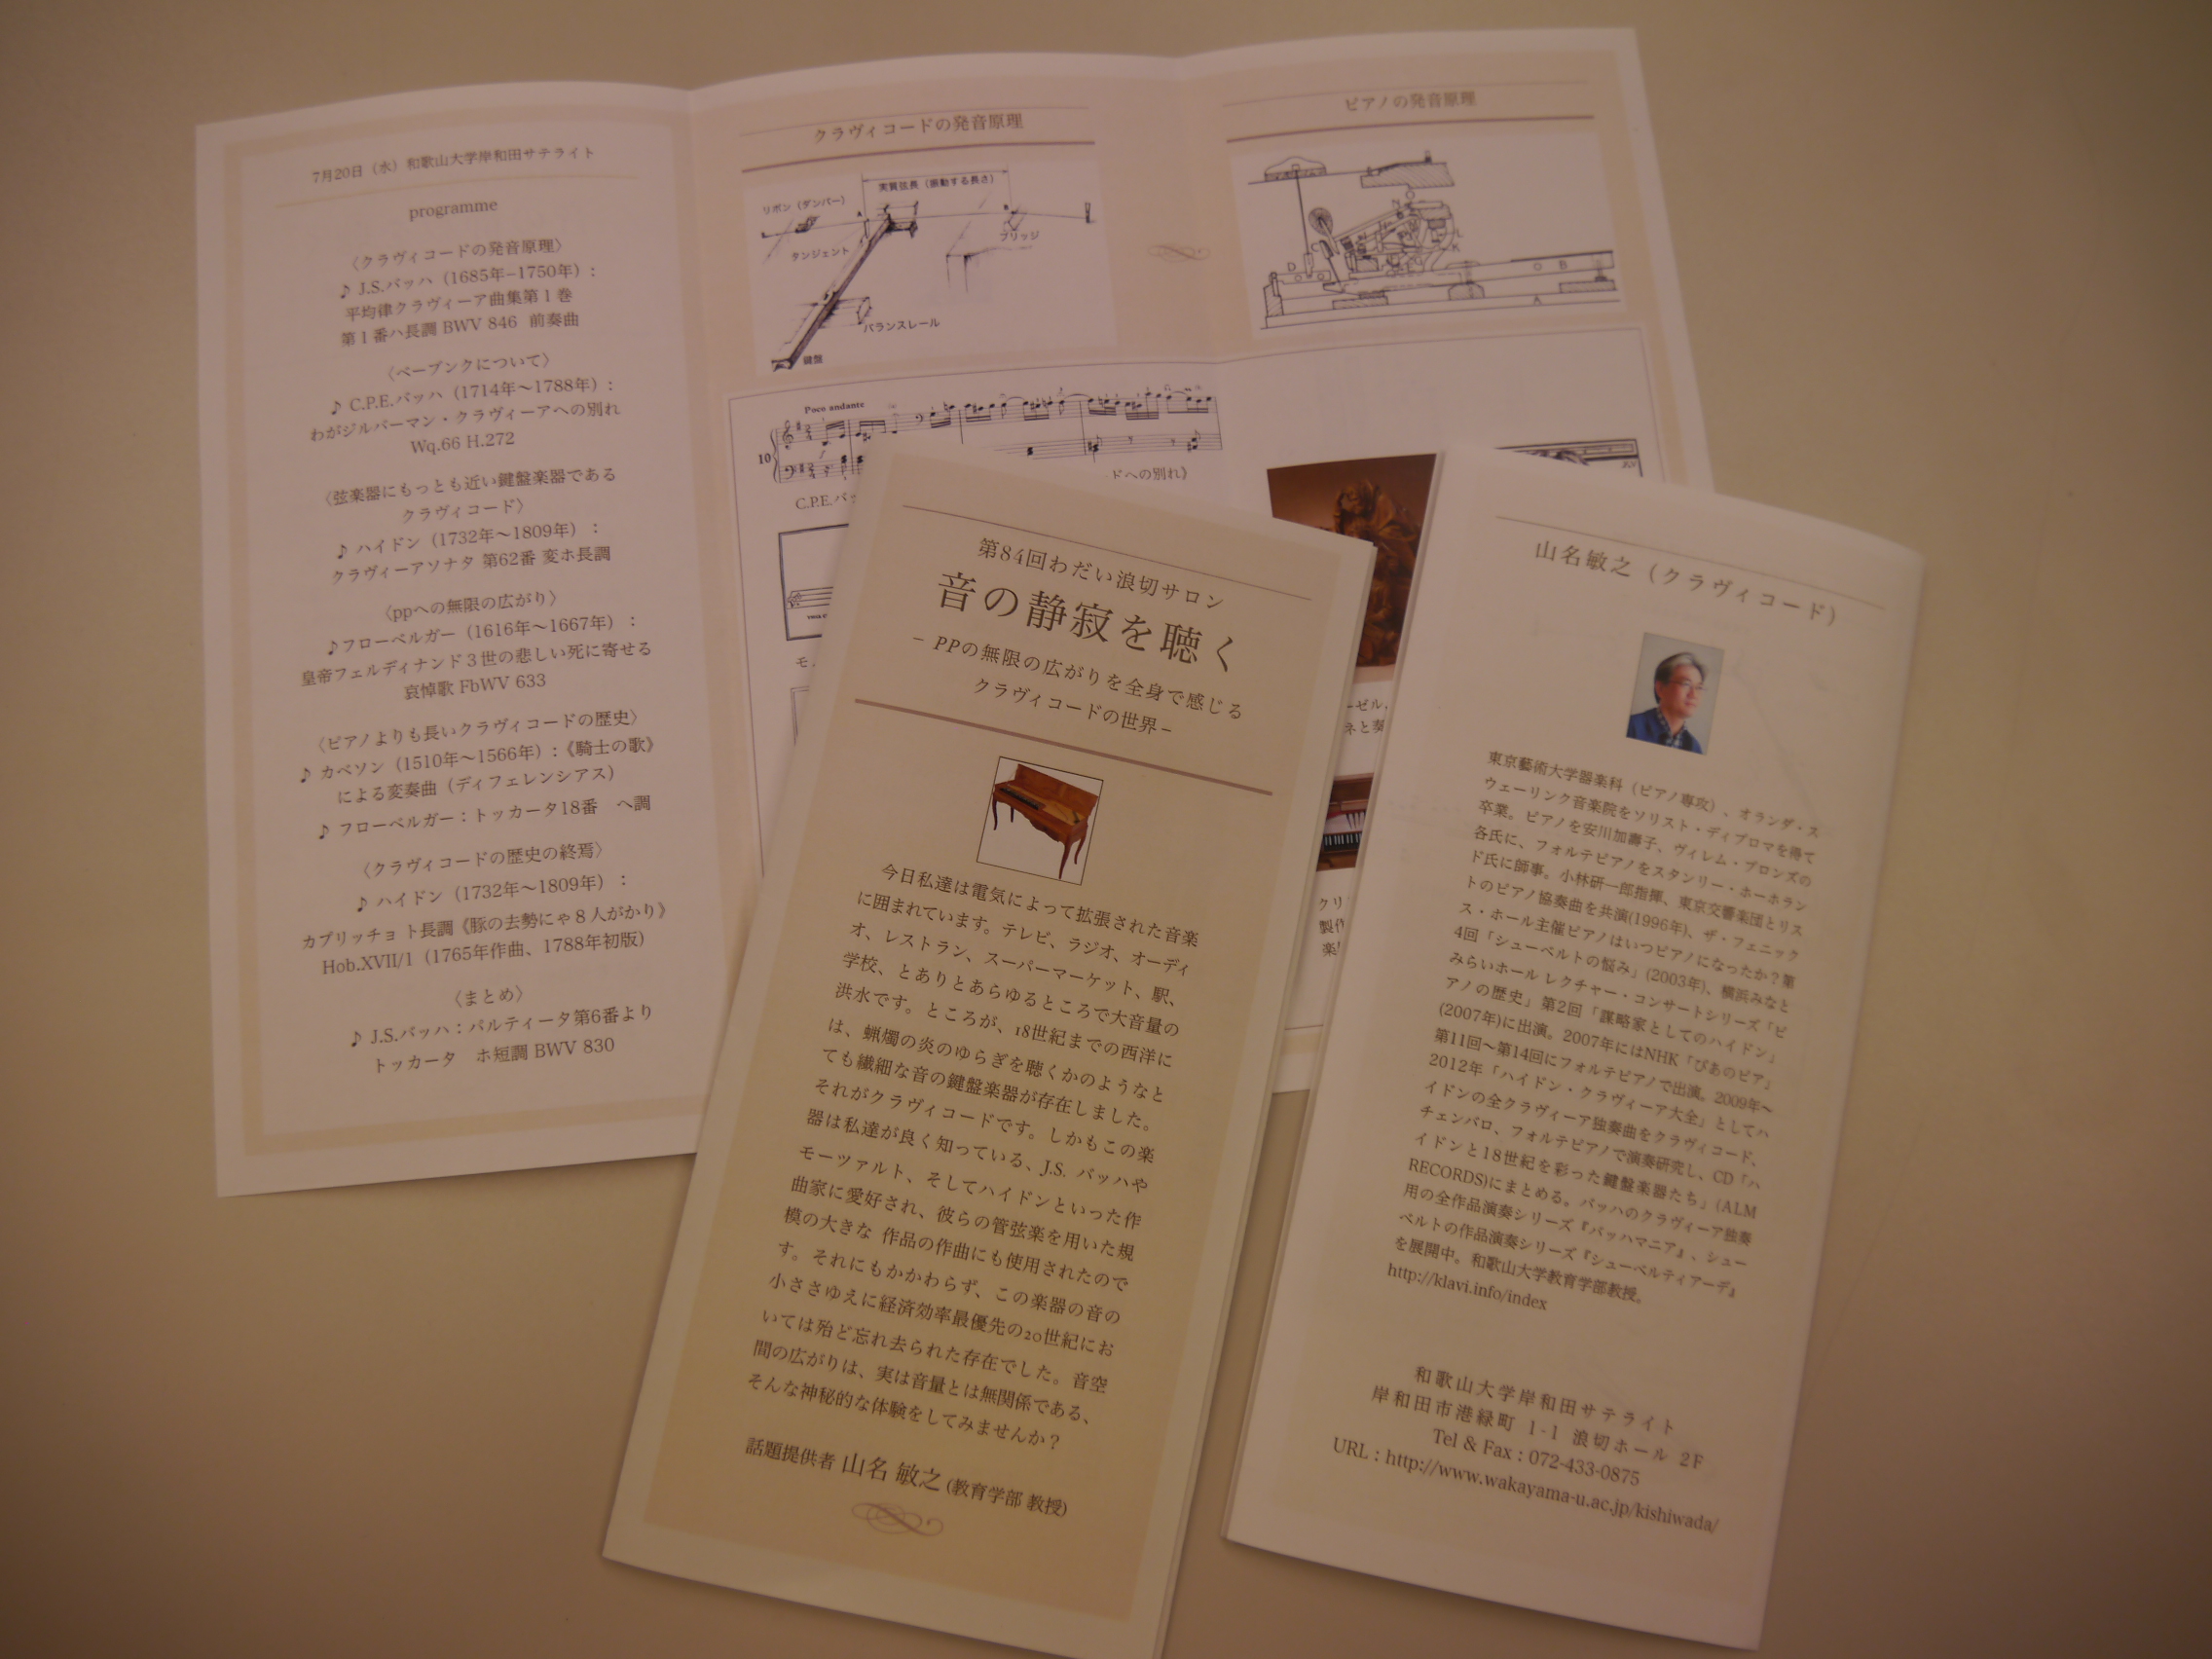 7月20日（水）和歌山大学岸和田サテライト
programme
〈クラヴィコードの発音原理〉
♪ J.S.バッハ（1685年–1750年）:
平均律クラヴィーア曲集第１巻
第１番ハ長調 BWV 846 前奏曲
〈ベーブンクについて〉
♪ C.P.E.バッハ（1714年〜1788年）:
わがジルバーマン・クラヴィーアへの別れ
Wq.66 H.272
〈弦楽器にもっとも近い鍵盤楽器である
クラヴィコード〉
♪ ハイドン（1732年〜1809年）：
クラヴィーアソナタ 第62番 変ホ長調
〈ppへの無限の広がり〉
♪フローベルガー（1616年〜1667年）：
皇帝フェルディナンド３世の悲しい死に寄せる
哀悼歌 FbWV 633
〈ピアノよりも長いクラヴィコードの歴史〉
♪ カベソン（1510年〜1566年）:《騎士の歌》
による変奏曲（ディフェレンシアス）
♪ フローベルガー：トッカータ18番　ヘ調
〈クラヴィコードの歴史の終焉〉
♪ ハイドン（1732年〜1809年）：
カプリッチョ ト長調《豚の去勢にゃ８人がかり》
Hob.XVII/1（1765年作曲、1788年初版）
〈まとめ〉
♪ J.S.バッハ：パルティータ第6番より
トッカータ　ホ短調 BWV 830
クラヴィコードの発音原理
実質弦長（振動する長さ）
リボン（ダンパー）
A
B
タンジェント
ブリッジ
バランスレール
鍵盤
ピアノの発音原理
D
C
L
K
B
A
Poco andante
10
C.P.E.バ
ドへの別れ》
モ
ーゼル,
ネと葵
クリ
製作
楽
第84回わだい浪切サロン
音の静寂を聴く
– PPの無限の広がりを全身で感じる
クラヴィコードの世界–
今日私達は電気によって拡張された音楽
に囲まれています。テレビ、ラジオ、オーディ
オ、レストラン、スーパーマーケット、駅、
学校、とありとあらゆるところで大音量の
洪水です。ところが、18世紀までの西洋に
は、蝋燭の炎のゆらぎを聴くかのようなと
ても繊細な音の鍵盤楽器が存在しました。
それがクラヴィコードです。しかもこの楽
器は私達が良く知っている、J.S. バッハや
モーツァルト、そしてハイドンといった作
曲家に愛好され、彼らの管弦楽を用いた規
模の大きな 作品の作曲にも使用されたので
す。それにもかかわらず、この楽器の音の
小ささゆえに経済効率最優先の20世紀にお
いては殆ど忘れ去られた存在でした。音空
間の広がりは、実は音量とは無関係である、
そんな神秘的な体験をしてみませんか？
話題提供者 山名 敏之 (教育学部 教授)
山名敏之（クラヴィコード）
東京藝術大学器楽科（ピアノ専攻）、オランダ・ス
ウェーリンク音楽院をソリスト・ディプロマを得て
卒業。ピアノを安川加壽子、ヴィレム・ブロンズの
各氏に、フォルテピアノをスタンリー・ホーホラン
ド氏に師事。小林研一郎指揮、東京交響楽団とリス
トのピアノ協奏曲を共演(1996年)、ザ・フェニック
ス・ホール主催ピアノはいつピアノになったか？第
4回「シューベルトの悩み」(2003年)、横浜みなと
みらいホール レクチャー・コンサートシリーズ「ピ
アノの歴史」第2回「謀略家としてのハイドン」
(2007年)に出演。2007年にはNHK「ぴあのピア」
第11回〜第14回にフォルテピアノで出演。2009年〜
2012年「ハイドン・クラヴィーア大全」としてハ
イドンの全クラヴィーア独奏曲をクラヴィコード、
チェンバロ、フォルテピアノで演奏研究し、CD「ハ
イドンと18世紀を彩った鍵盤楽器たち」(ALM
RECORDS)にまとめる。バッハのクラヴィーア独奏
用の全作品演奏シリーズ『バッハマニア』、シュー
ベルトの作品演奏シリーズ『シューベルティアーデ』
を展開中。和歌山大学教育学部教授。
http://klavi.info/index
和歌山大学岸和田サテライト
岸和田市港緑町 1-1 浪切ホール 2F
Tel & Fax : 072-433-0875
URL : http://www.wakayama-u.ac.jp/kishiwada/